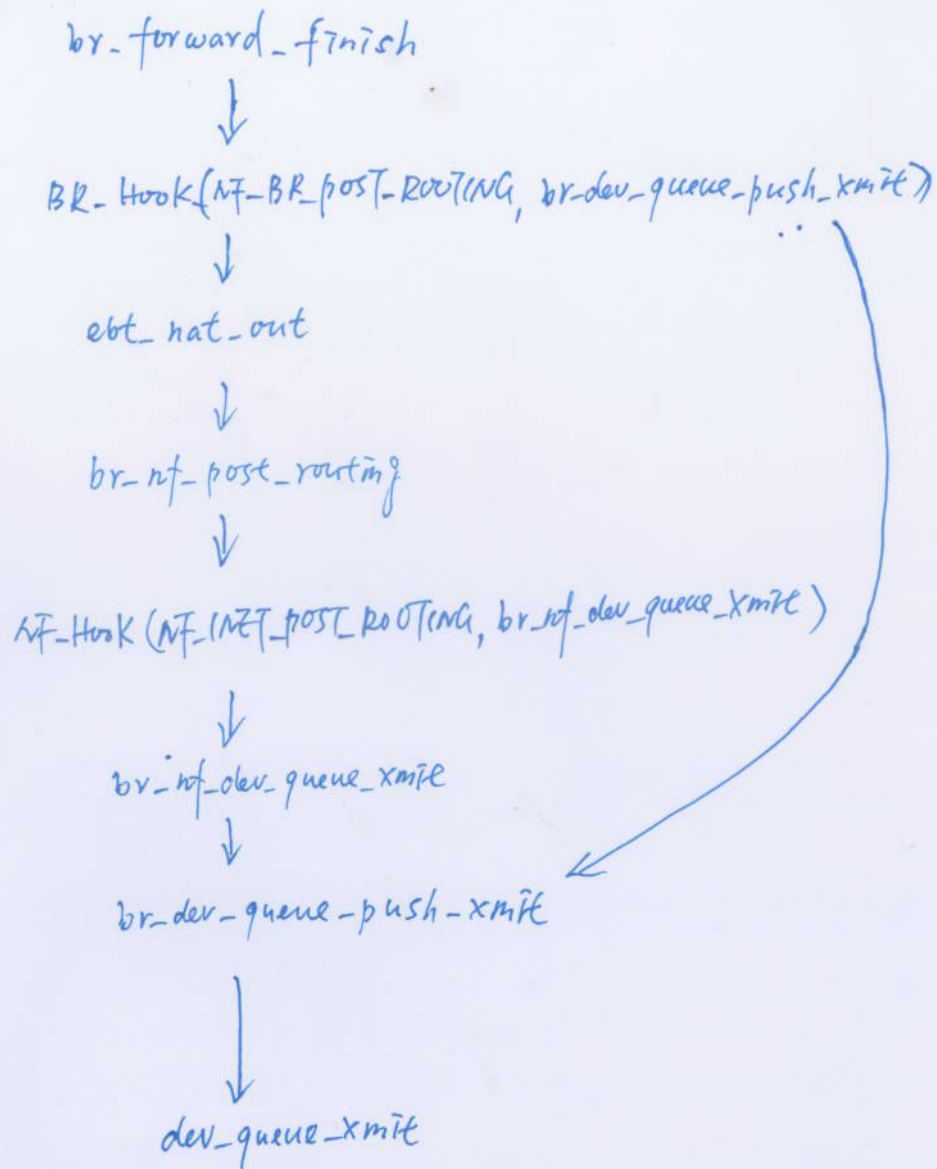 br_forward_finish
BR_HOOK(NF_BR_POST_ROUTING, br_dev_queue_push_xmit)
ebt_nat_out
br_nf_post_routing
NF_HOOK(NF_INET_POST_ROUTING, br_nf_dev_queue_xmit)
br_nf_dev_queue_xmit
br_dev_queue_push_xmit
dev_queue_xmit